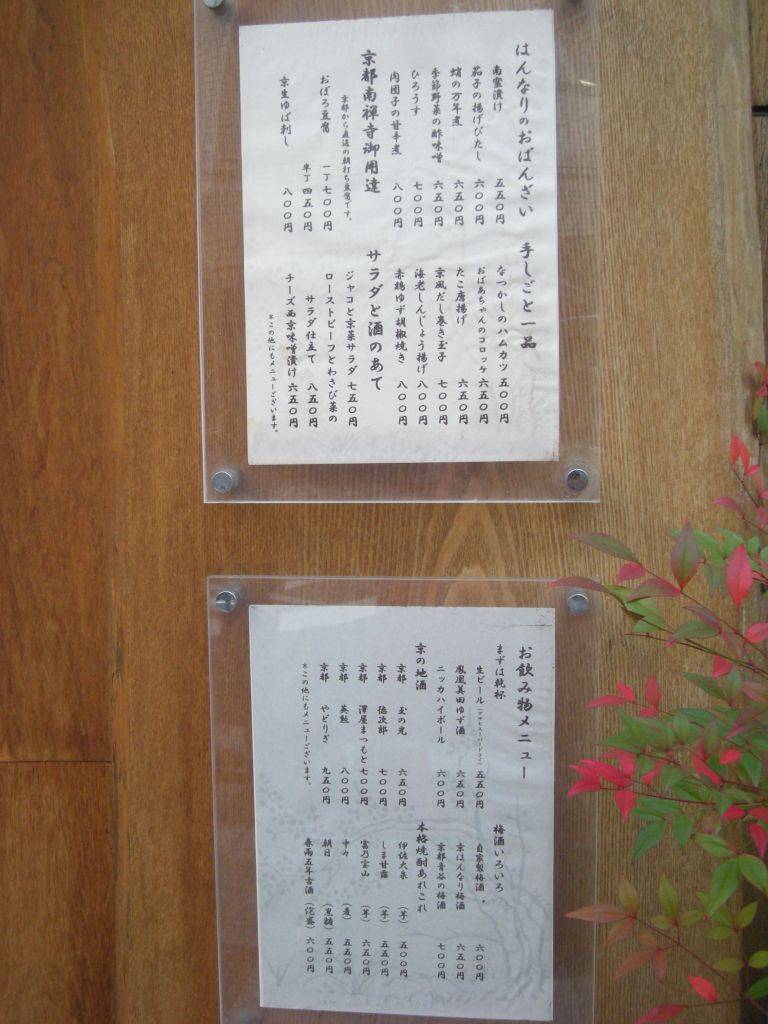 はんなりのおばんざい
南蛮漬け 五五〇円
茄子の揚げびたし 六〇〇円
蛸の万年煮 六五〇円
季節野菜の酢味噌 六五〇円
ひろうす 七〇〇円
肉団子の甘辛煮 八〇〇円
京都南禅寺御用達
京都から直送の朝打ち豆腐です。
おぼろ豆腐 一丁 七〇〇円
半丁 四五〇円
京生ゆば刺し 八〇〇円
手しごと一品
なつかしのハムカツ 五〇〇円
おばあちゃんのコロッケ 六五〇円
たこ唐揚げ 六五〇円
京風だし巻き玉子 七〇〇円
海老しんじょう揚げ 八〇〇円
赤鶏ゆず胡椒焼き 八〇〇円
サラダと酒のあて
ジャコと京菜サラダ 七五〇円
ローストビーフとわさび菜の
サラダ仕立て 八五〇円
チーズ西京味噌漬け 六五〇円
*この他にもメニューございます。
お飲み物メニュー
まずは乾杯
生ビール 五五〇円
鳳凰美田ゆず酒 六五〇円
ニッカハイボール 六〇〇円
京の地酒
京都 玉の光 六五〇円
京都 徳次郎 七〇〇円
京都 澤屋まつもと 七〇〇円
京都 英勲 八〇〇円
京都 やどりぎ 九五〇円
*この他にもメニューございます。
梅酒いろいろ
自家製梅酒 六〇〇円
京はんなり梅酒 六五〇円
京都青谷の梅酒 七〇〇円
本格焼酎あれこれ
伊佐大泉 (芋) 五〇〇円
しま甘露 (芋) 五五〇円
富乃宝山 (芋) 六五〇円
中々 (麦) 五五〇円
朝日 (黒糖) 五五〇円
春雨五年古酒 (泡盛) 六〇〇円